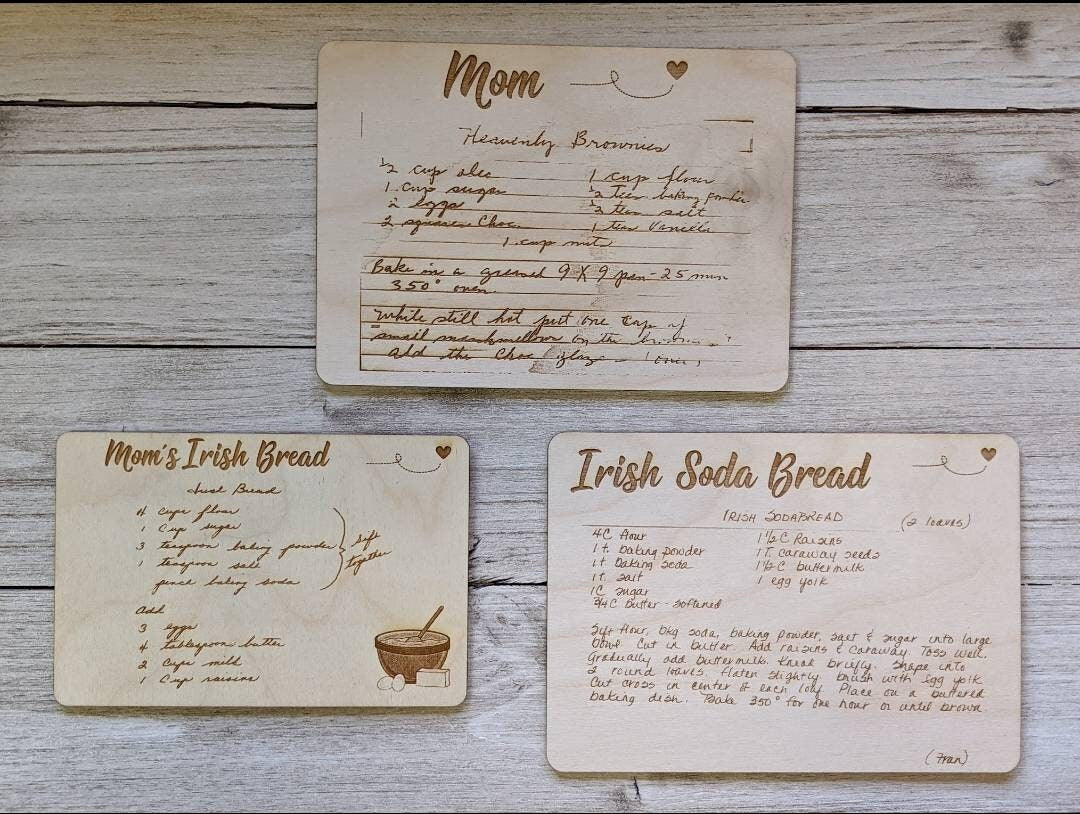 Mom
Heavenly Brownies
1/2 cup oleo
1 cup sugar
2 eggs
2 squares Choc
1 cup flour
1/2 teas baking powder
1/2 teas salt
1 teas vanilla
1 cup nuts
Bake in a greased 9 X 9 pan - 25 min
350° oven.
While still hot put one cup of
small marshmellow on the
add the Choc glaze
Mom's Irish Bread
Irish Bread
4 cups flour
1 Cup sugar
3 teaspoon baking powder
1 teaspoon salt
pinch baking soda
Sift
together
add
3 eggs
4 tablespoon butter
2 Cups milk
1 Cup raisins
Irish Soda Bread
IRISH SODABREAD (2 loaves)
4C flour
1 t. baking powder
1 t baking soda
1 t. salt
1C sugar
3/4 C butter - softened
1 1/2 C Raisins
1 T. caraway seeds
1 1/2 C buttermilk
1 egg yolk
Sift flour, bkg soda, baking powder, salt & sugar into large
bowl Cut in butter. Add raisins & caraway. Toss well.
Gradually add buttermilk. Knead briefly. Shape into
2 round loaves. flaten slightly brush with egg yolk
Cut cross in center of each loaf Place on a buttered
baking dish. Bake 350° for one hour or until brown.
(Fran)